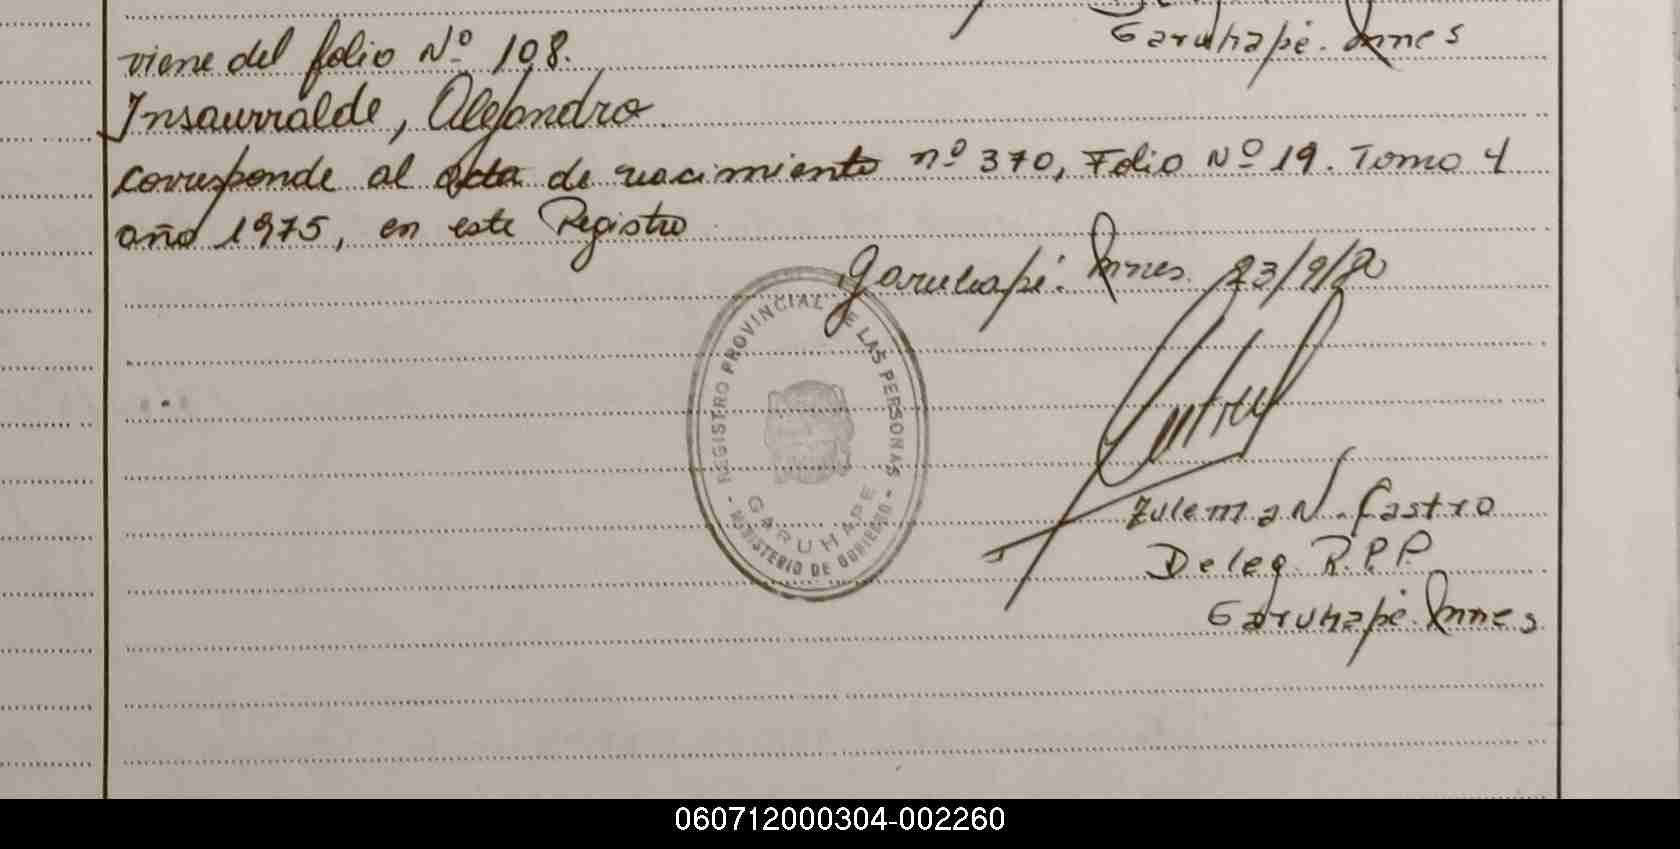 Garuhapé. Mnes
viene del folio Nº 108.
Insaurralde, Alejandro
corresponde al acta de nacimiento nº 370, Folio Nº 19. Tomo 4
año 1975, en este Registro
Garuhapé. Mnes. 23/9/80
REGISTRO PROVINCIAL DE LAS PERSONAS
GARUHAPE
- MINISTERIO DE GOBIERNO -
Zulema N. Castro
Deleg. R.P.P.
Garuhapé. Mnes
060712000304-002260